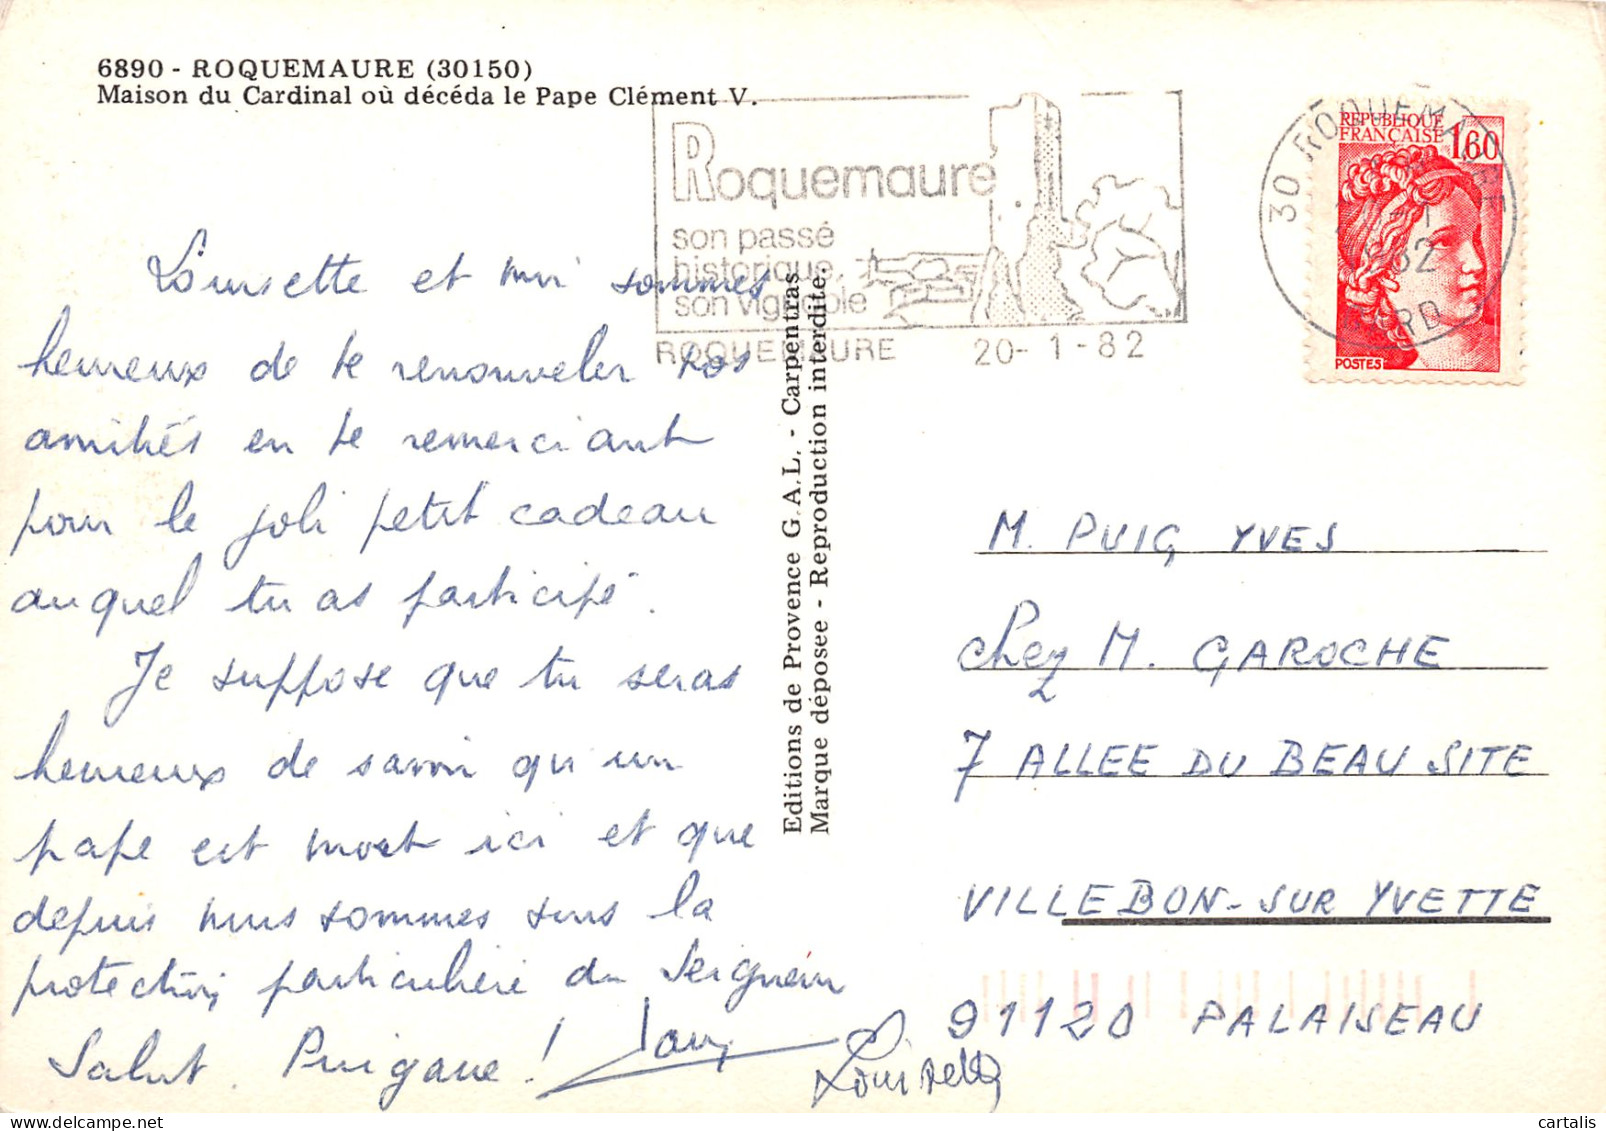 6890 - ROQUEMAURE (30150)
Maison du Cardinal où décéda le Pape Clément V.
Roquemaure
son passé
historique,
son vignoble
ROQUEMAURE 20-1-82
30 ROQUEMAURE
GARD
REPUBLIQUE
FRANÇAISE 1,60
POSTES
Louisette et moi sommes
heureux de te renouveler nos
amitiés en te remerciant
pour le joli petit cadeau
auquel tu as participé.
Je suppose que tu seras
heureux de savoir qu'un
pape est mort ici et que
depuis nous sommes sous la
protection particulière du Seigneur
Salut Puigane !
Louisette
Editions de Provence G.A.L. - Carpentras
Marque déposee - Reproduction interdite.
M. PUIG YVES
chez M. GAROCHE
7 ALLEE DU BEAU SITE
VILLEBON-SUR YVETTE
91120 PALAISEAU
cartalis